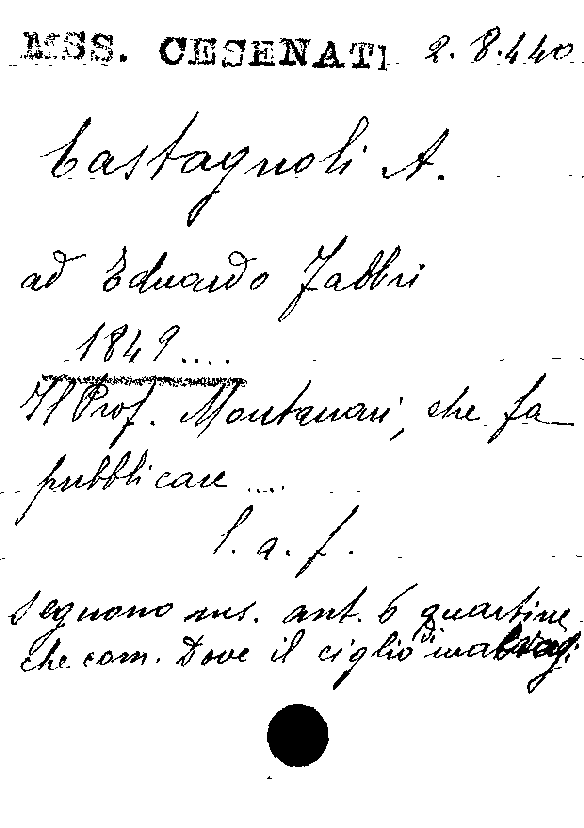 MSS. CESENATI 2.8.440
Castagnoli A.
ad Eduardo Fabbri
1849....
Il Prof. Montanari, che fa
pubblicare ....
l. a. f.
Seguono ms. ant. 6 quartine
che com. Dove il ciglio di